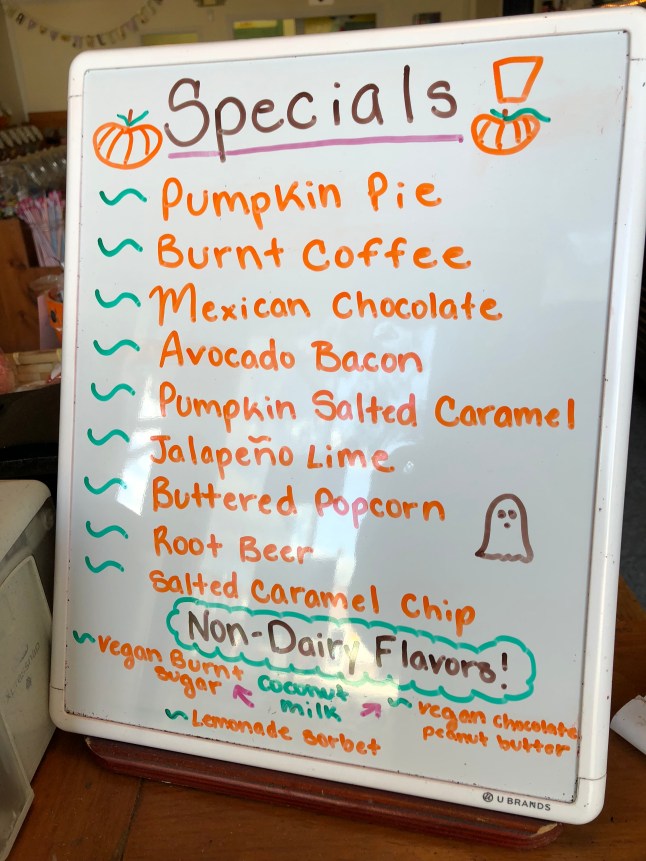 Specials
Pumpkin Pie
Burnt Coffee
Mexican Chocolate
Avocado Bacon
Pumpkin Salted Caramel
Jalapeño Lime
Buttered Popcorn
Root Beer
Salted Caramel Chip
Non-Dairy Flavors!
Vegan Burnt
Sugar
Coconut
Milk
Vegan Chocolate
Peanut Butter
Lemonade Sorbet
U BRANDS